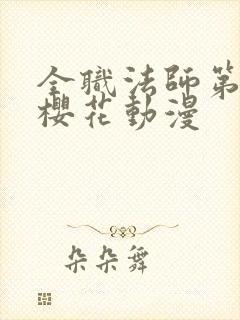 全職法師第
櫻花動漫
朵朵舞